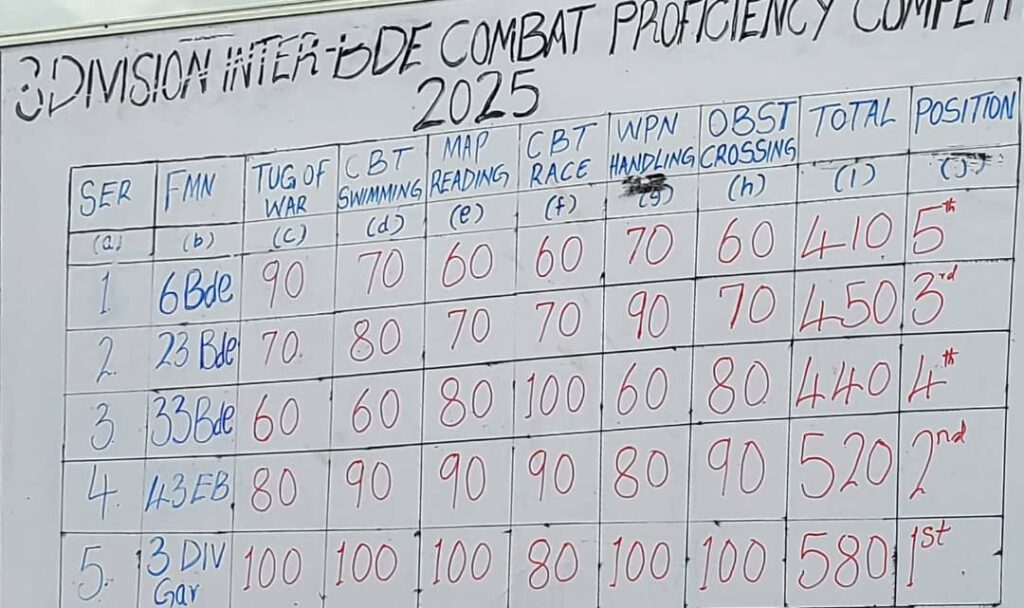 3 DIVISION INTER-BDE COMBAT PROFICIENCY COMPETI
2025
SER FMN TUG OF WAR CBT SWIMMING MAP READING CBT RACE WPN HANDLING OBST CROSSING TOTAL POSITION
(a) (b) (c) (d) (e) (f) (g) (h) (i) (j)
1 6 Bde 90 70 60 60 70 60 410 5th
2. 23 Bde 70. 80 70 70 90 70 450 3rd
3. 33 Bde 60 60 80 100 60 80 440 4th
4. 43 EB 80 90 90 90 80 90 520 2nd
5. 3 DIV Gar 100 100 100 80 100 100 580 1st